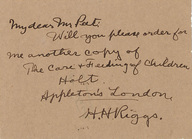 My dear Mr Peet.
Will you please order for
me another copy of
The Care & Feeding of Children
Holt.
Appleton's London.
H.H. Riggs.